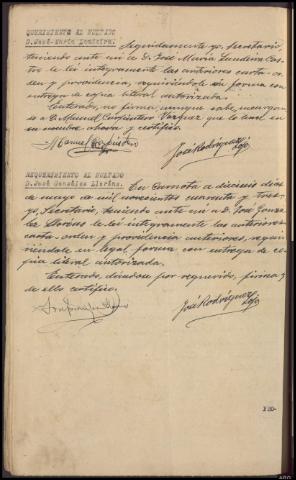 REQUERIMIENTO AL NOMBRADO
D. José María Landeira.
Seguidamente yo, Secretario
teniendo ante mí a D. José María Landeira Cas-
tro le leí íntegramente las anteriores carta-or-
den y providencia, requiriéndole en forma con
entrega de copia literal autorizada.
Enterado, no firma, aunque sabe,
a D. Manuel Carpintero Vazquez que lo hace en
su nombre ahora y certifico.
Manuel Carpintero
José Rodríguez
REQUERIMIENTO AL NOMBRADO
D. José González Llerena.
En a dieciseis dias
de mayo de mil novecientos cuarenta y tres
yo, Secretario, teniendo ante mí a D. José Gonza-
lez le leí íntegramente las anteriores
carta-orden y providencia anteriores, requi-
riéndole en legal forma con entrega de co-
pia literal autorizada.
Enterado, dándose por requerido, firma y
de ello certifico.
José Rodríguez